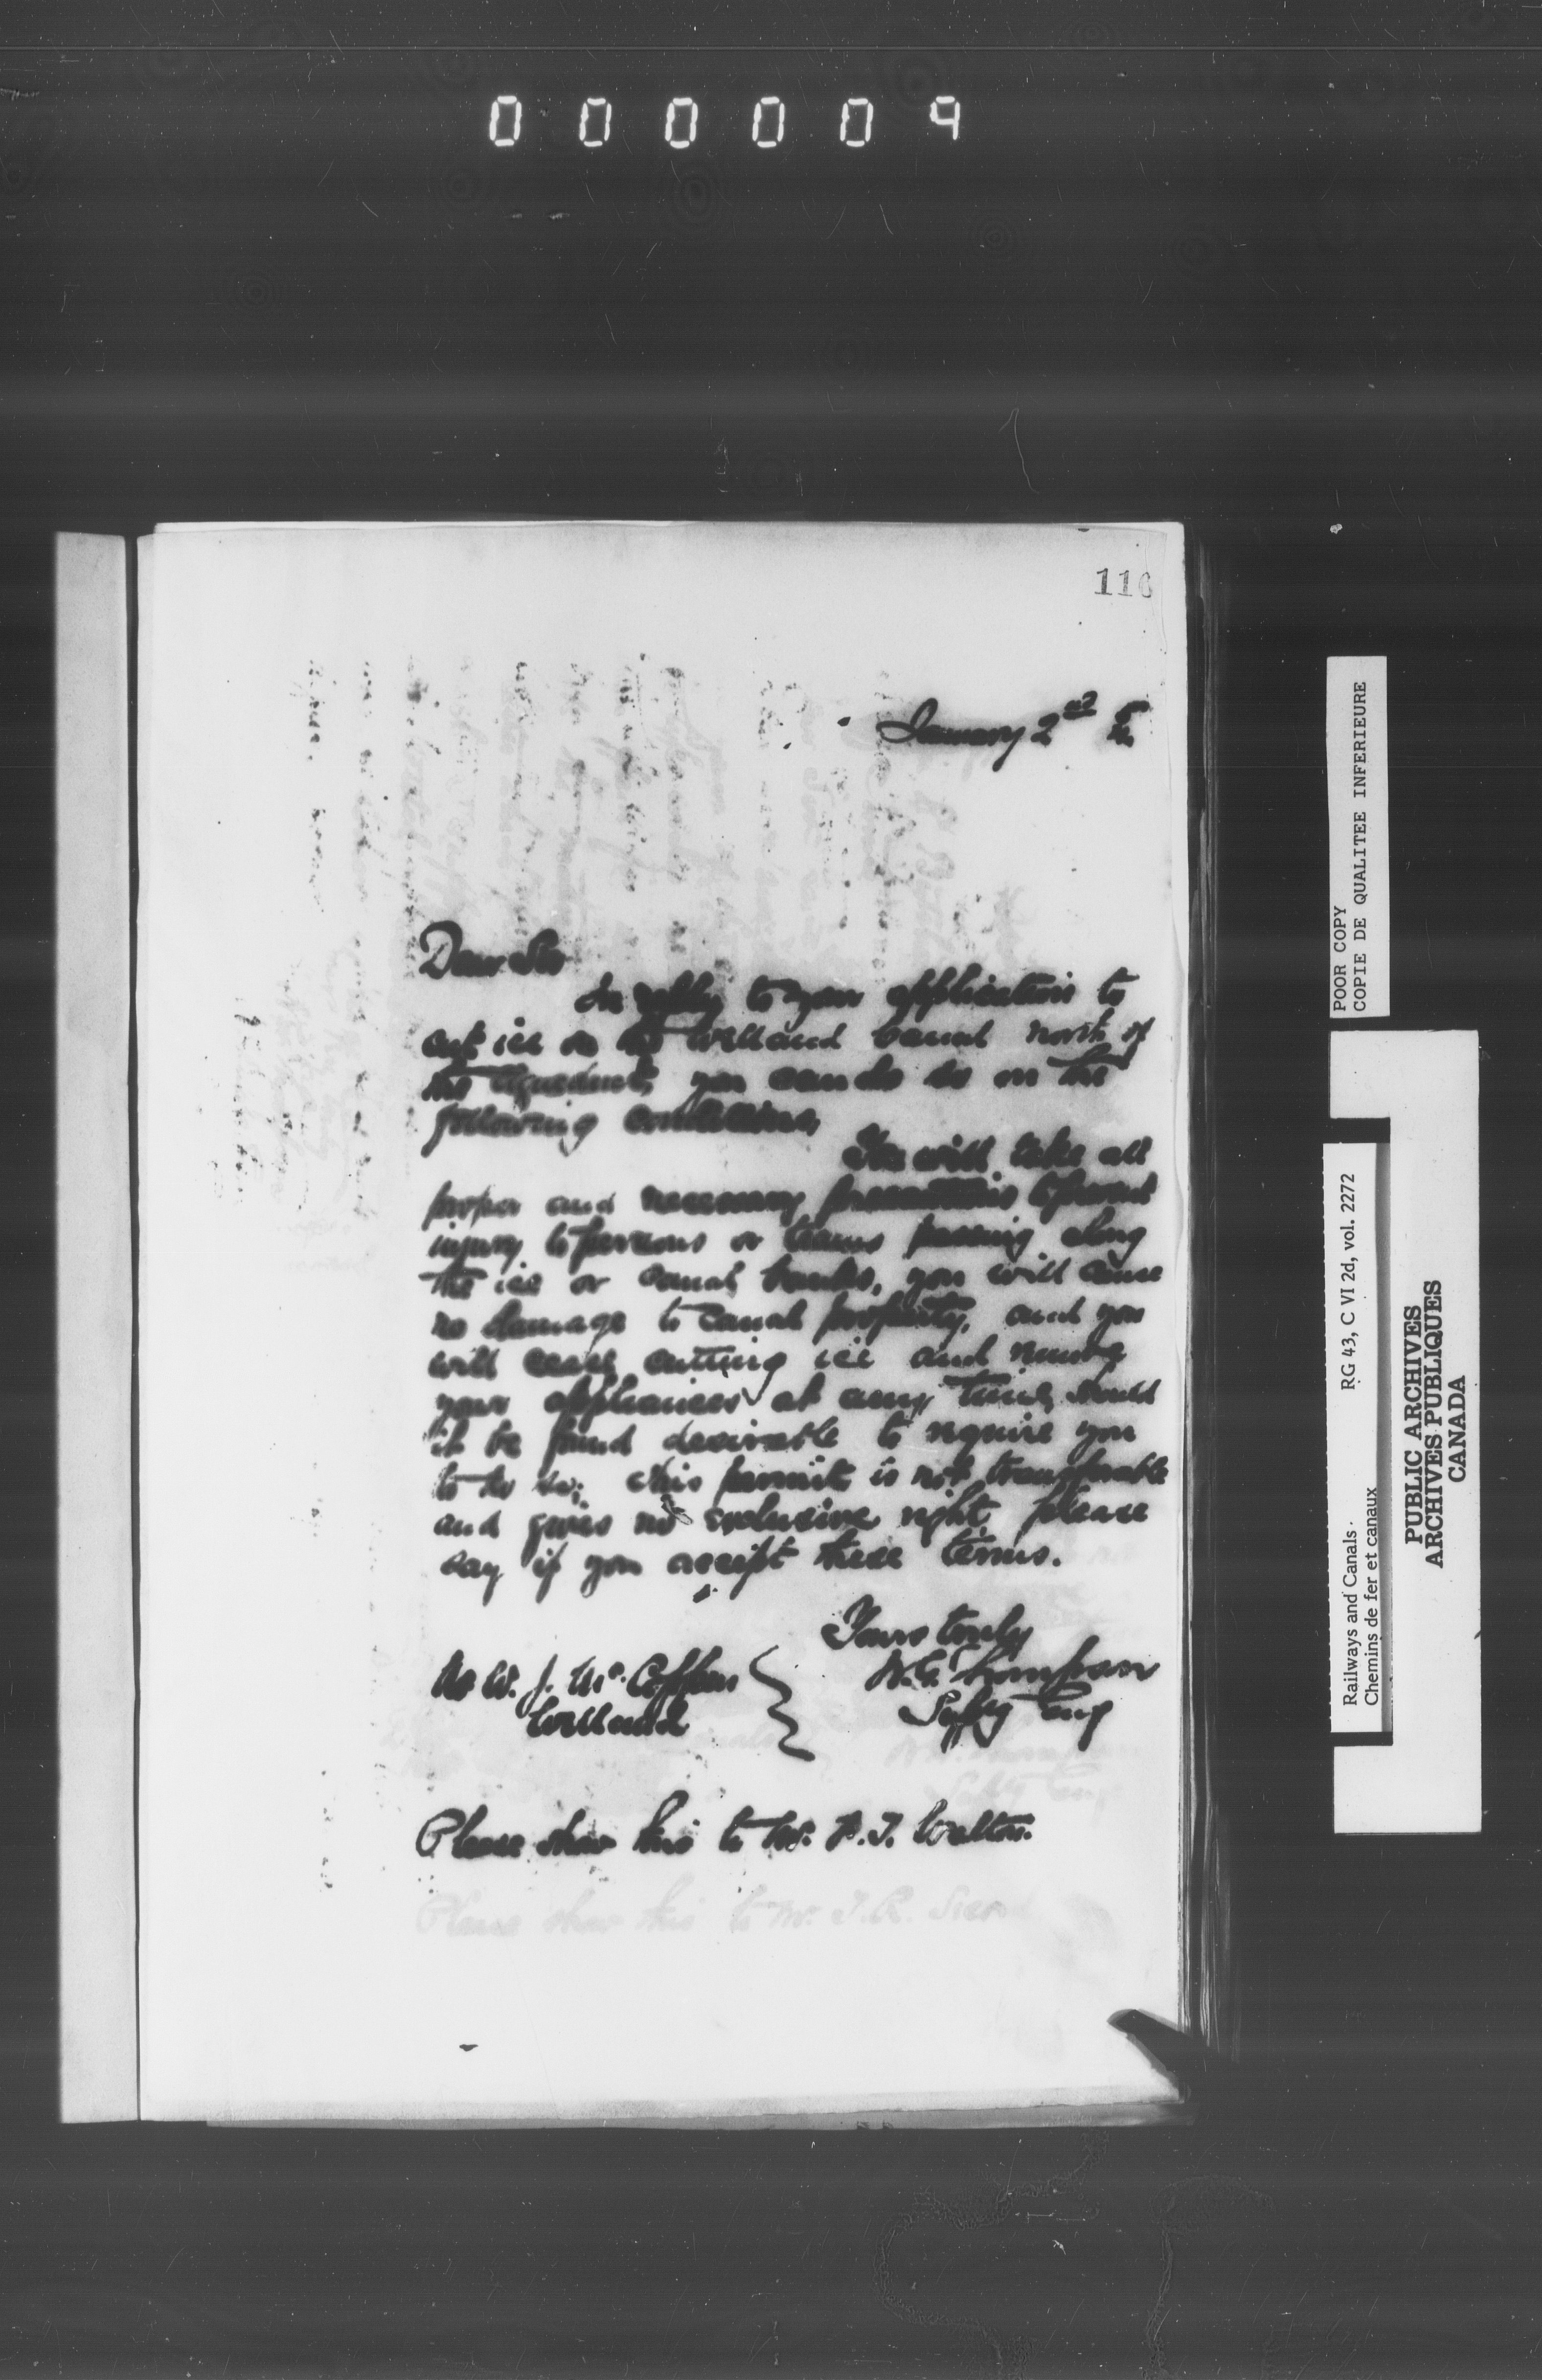 000009
116
January 2nd
Dear Sir
In reply to your application to
cut ice on the Welland Canal north of
the Aqueduct, you can do so on the
following conditions,
You will take all
proper and necessary precautions to prevent
injury to persons or teams passing along
the ice or canal banks, you will cause
no damage to canal property, and you
will cease cutting ice and remove
your appliances at any time, should
it be found desirable to require you
to do so; this permit is not transferable
and gives no exclusive right please
say if you accept these terms.
Yours truly
W. G. Thompson
Suptg Eng
Mr W. J. Mc
Welland
Please show this to Mr. Walton.
Please show this to Mr. J. R.
POOR COPY
COPIE DE QUALITEE INFERIEURE
Railways and Canals RG 43, C VI 2d, vol. 2272
Chemins de fer et canaux
PUBLIC ARCHIVES
ARCHIVES PUBLIQUES
CANADA